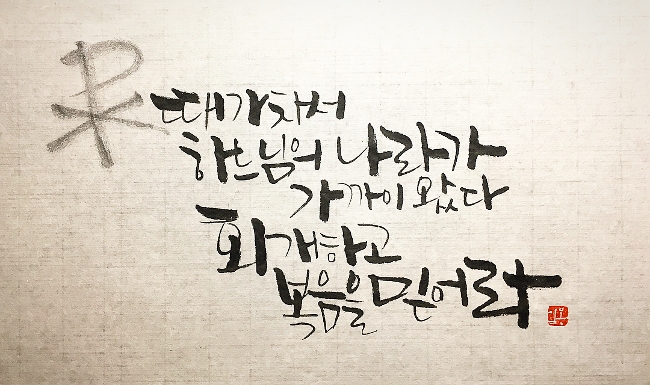 때가 차서
하느님의 나라가
가까이 왔다
회개하고
복음을 믿어라